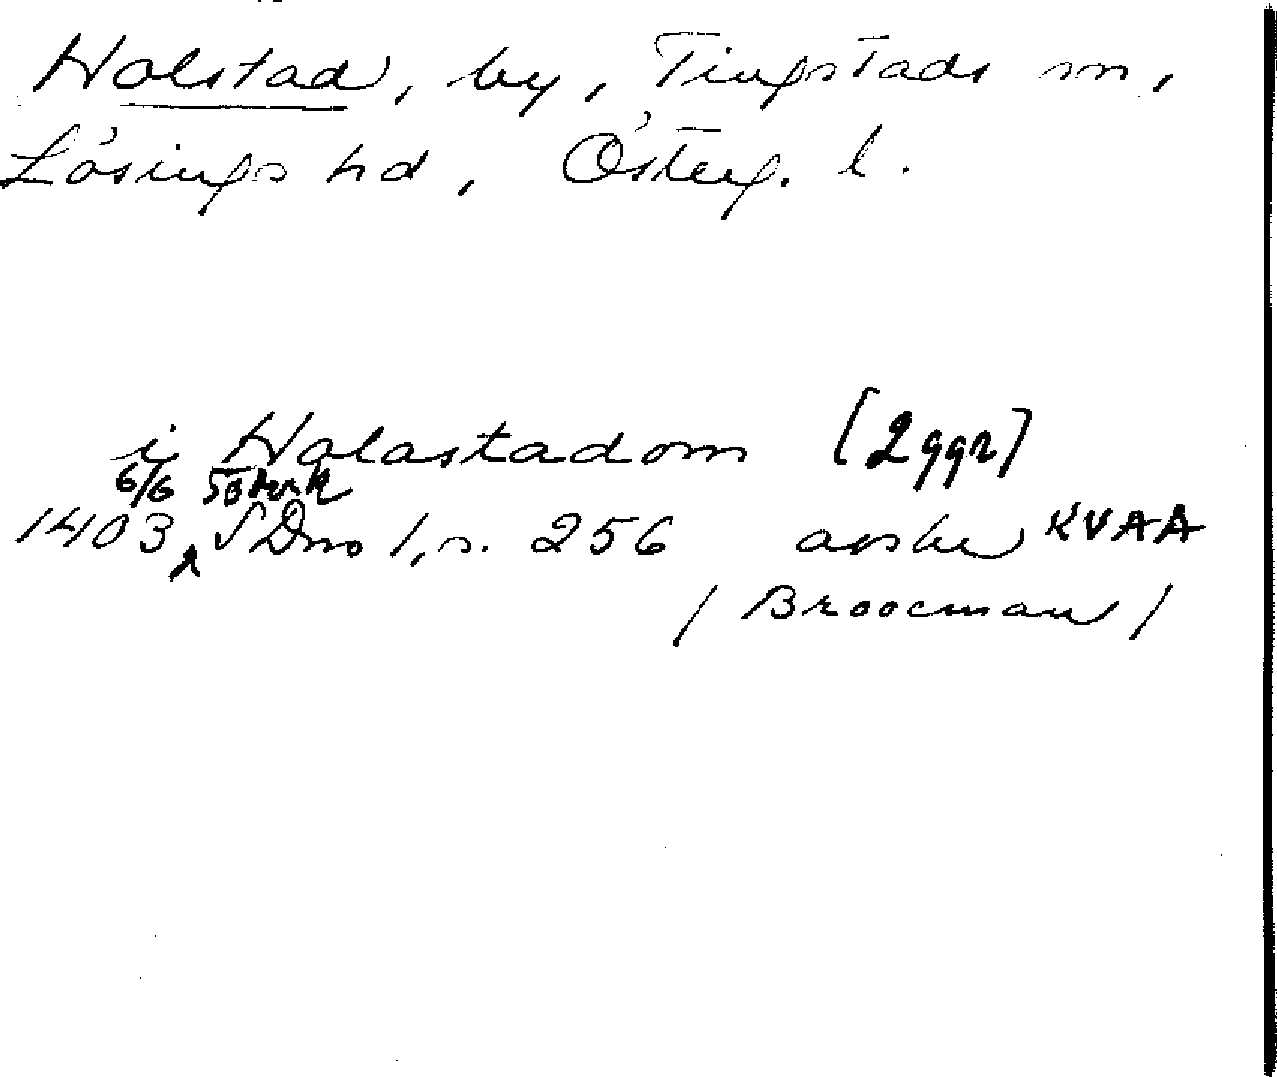 Holstad, by, Tingstads sn,
Lösings hd, Österg. l.
i Holastadom [2ggr]
6/6
1403 SDns 1, s. 256 avskr KVAA
/ Broocman /